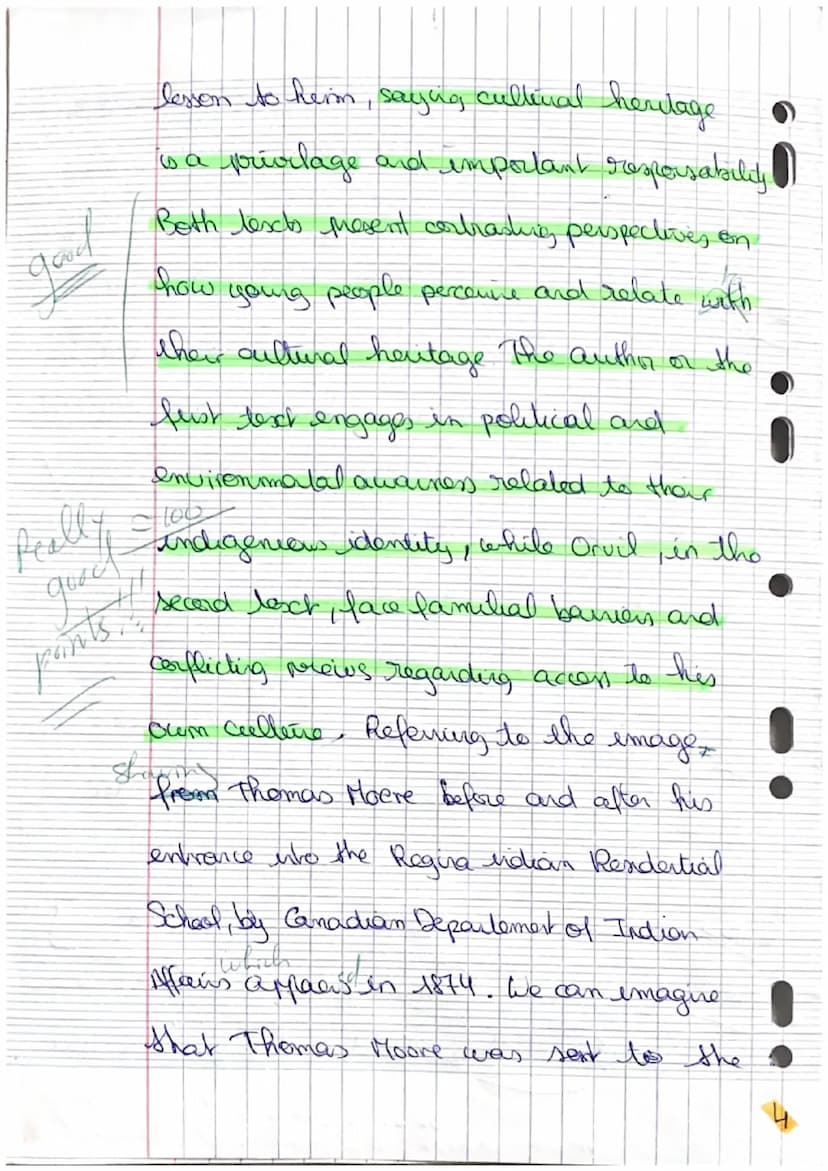 lesson to heim, saying cultural heritage
is a privilage and important responsability
Both texts present contrasting perspectives on
good
how young people perceive and relate with
to
their cultural heritage. The author or the
first text engages in political and
environmental awarness related to their
Really good points!!!
= 100
indigenious identity, while Orvil, in the
second text, face familial barriers and
conflicting voices regarding access to his
own culture. Referring to the image,
showing
from Thomas Moore before and after his
entrance into the Regina indian Residential
School, by Canadian Departement of Indian
which
Affairs appears in 1874. We can imagine
that Thomas Moore was sent to the
4